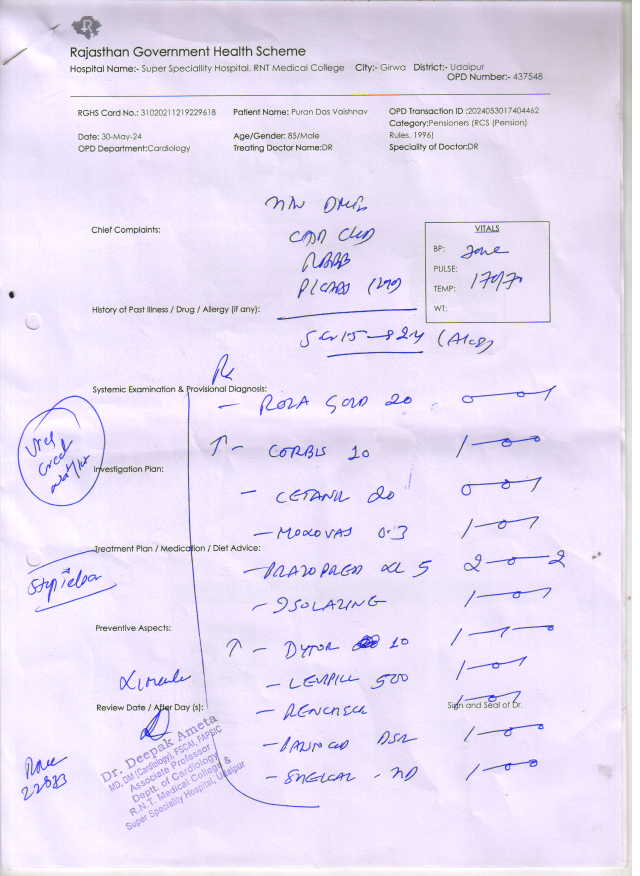 R
Rajasthan Government Health Scheme
Hospital Name:- Super Speciallity Hospital, RNT Medical College City:- Girwa District:- Udaipur
OPD Number:- 437548
RGHS Card No.: 31020211219229618 Patient Name: Puran Das Vaishnav OPD Transaction ID :2024053017404462
Category:Pensioners (RCS (Pension) Rules, 1996)
Date: 30-May-24 Age/Gender: 85/Male
OPD Department:Cardiology Treating Doctor Name:DR Speciality of Doctor:DR
Chief Complaints:
CAD CKD
RBBB
VITALS
BP:
PULSE:
TEMP: 170/70
WT:
History of Past Illness / Drug / Allergy (if any):
Rx
Systemic Examination & Provisional Diagnosis:
- ROZA GOLD 20 0-0-1
↑ - CORBIS 10 1-0-0
Investigation Plan:
- CETANIL 20 0-0-1
- MOXOVAS 0.3 1-0-1
Treatment Plan / Medication / Diet Advice:
- PRAZOPRESS XL 5 2-0-2
- ISOLAZINE 1-0-1
Preventive Aspects:
↑ - DYTOR 10 1-1-0
- LEVIPILL 500 1-0-1
Review Date / After Day (s):
Sign and Seal of Dr.
- 1-0-0
- DSR 1-0-0
- SHELCAL - HD 1-0-0
Dr. Deepak Ameta
MD, DM (Cardiology), FSCAI, FAPSIC
Associate Professor
Deptt. of Cardiology
R.N.T. Medical College &
Super Speciality Hospital, Udaipur